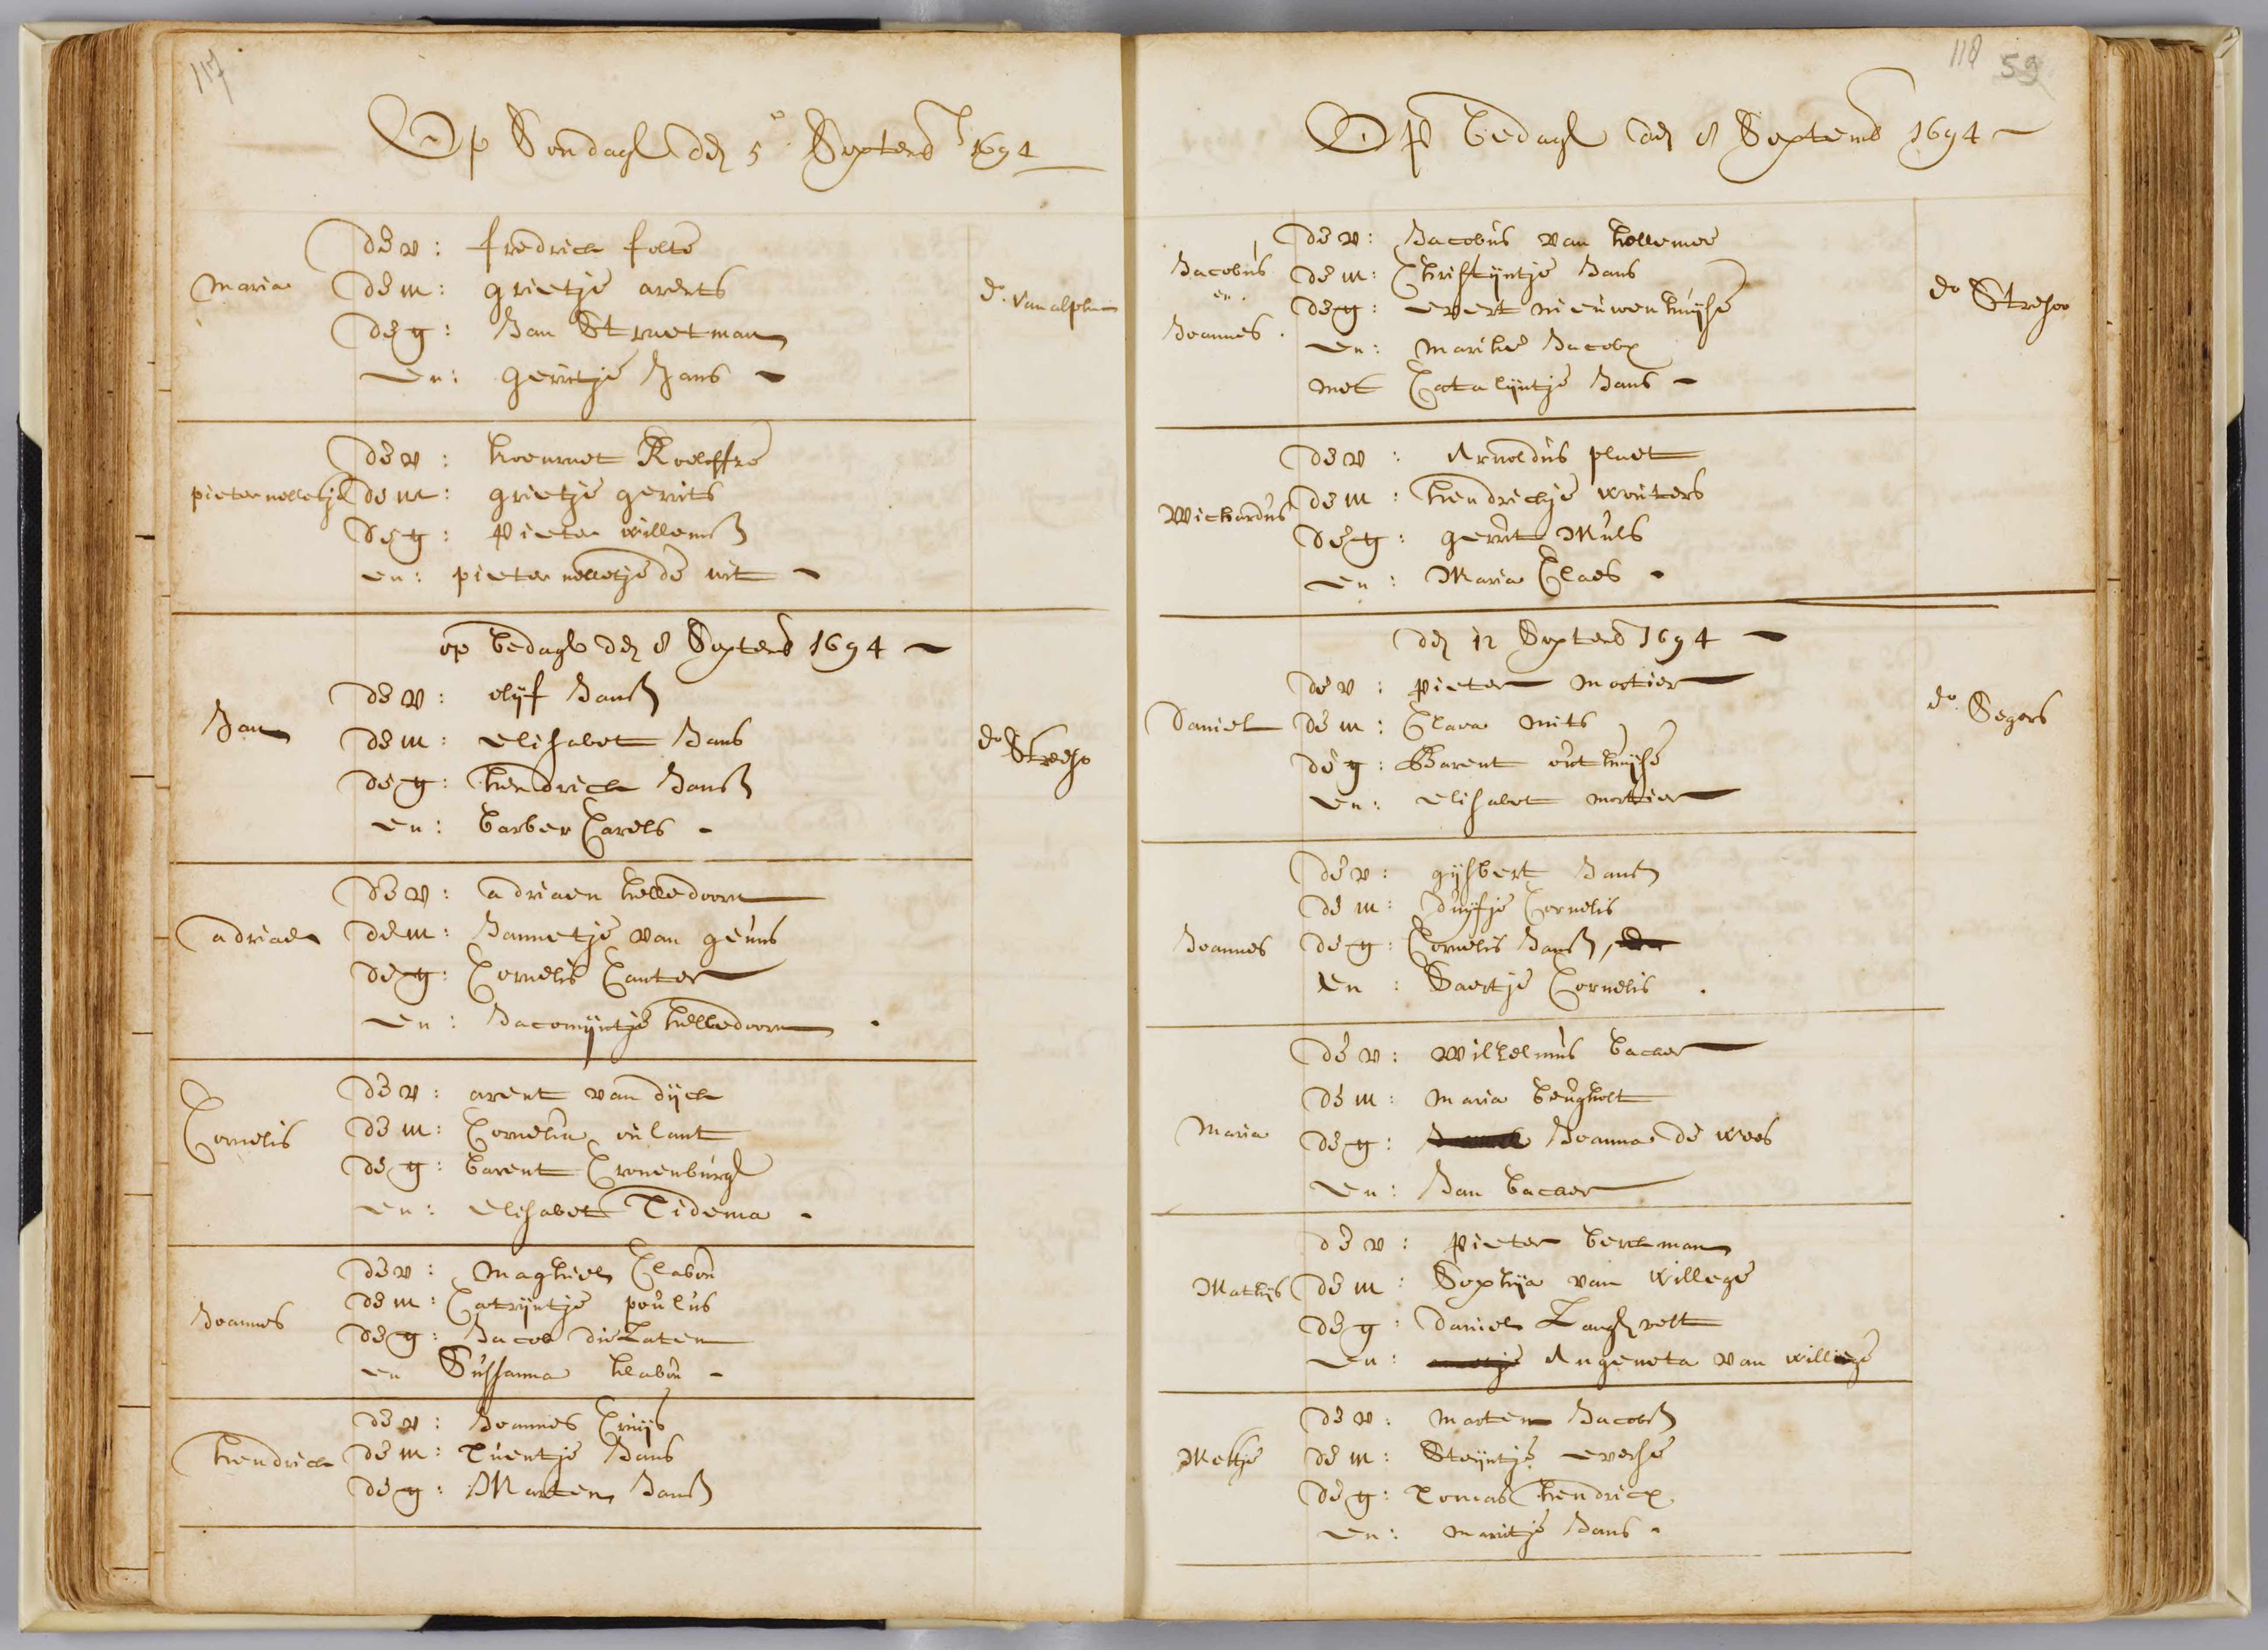 117
Op Sondagh den 5e Septemb 1694
Maria
de v: fredrick folte
de m: grietje arents
de g: Jan Straetman
en: gerritje Jans
do. van alphen
pieternelletje
de v: koenraet Roeloffse
de m: grietje gerrits
de g: Pieter willemsz
en: pieternelletje de wit
op bedagh den 8 Septemb 1694
Jan
de v: olijf Jansz
de m: elisabet Jans
de g: hendrick Jansz
en: barber Carels
do Streso
adriaen
de v: adriaen helledoorn
de m: Jannetje van geuns
de g: Cornelis Canter
en: Jacomijntje helledoorn
Cornelis
de v: arent van dijck
de m: Cornelia uilant
de g: barent Cronenburgh
en: elisabet Tidema
Joannes
de v: Maghiel Clabou
de m: Catrijntje poulus
de g: Jacob du
en Sussanna klabou
hendrick
de v: Joannes Cruijs
de m: Trientje Jans
de g: Marten Jansz
118 59
Op bedagh den 8 Septemb 1694
Jacobus
en
Joannes
de v: Jacobus van hellemoe
de m: Christijntje Jans
de g: evert nieuwenhuijse
en: Marike Jacobx
met Catalijntje Jans
do Streso
Wichardus
de v: Arnoldus plaet
de m: hendrickje wouters
de g: gerrit Muls
en: Maria Claes
den 12 Septemb 1694
Daniel
de v: pieter mortier
de m: Clara mits
de g: Barent outhuijse
en: elisabet mortier
do. Segers
Joannes
de v: gijsbert Jansz
de m: duijfje Cornelis
de g: Cornelis Jansz,
en: Saertje Cornelis
Maria
de v: Wilhelmus backer
de m: Maria beugholt
de g: Joanna de wees
en: Jan backer
Mathijs
de v: pieter berckman
de m: Sophija van willege
de g: Daniel Langhvelt
en: Angeneta van williege
Metije
de v: Marten Jacobsz
de m: Stijntje everse
de g: Tomas hendricx
en: Maritje Jans